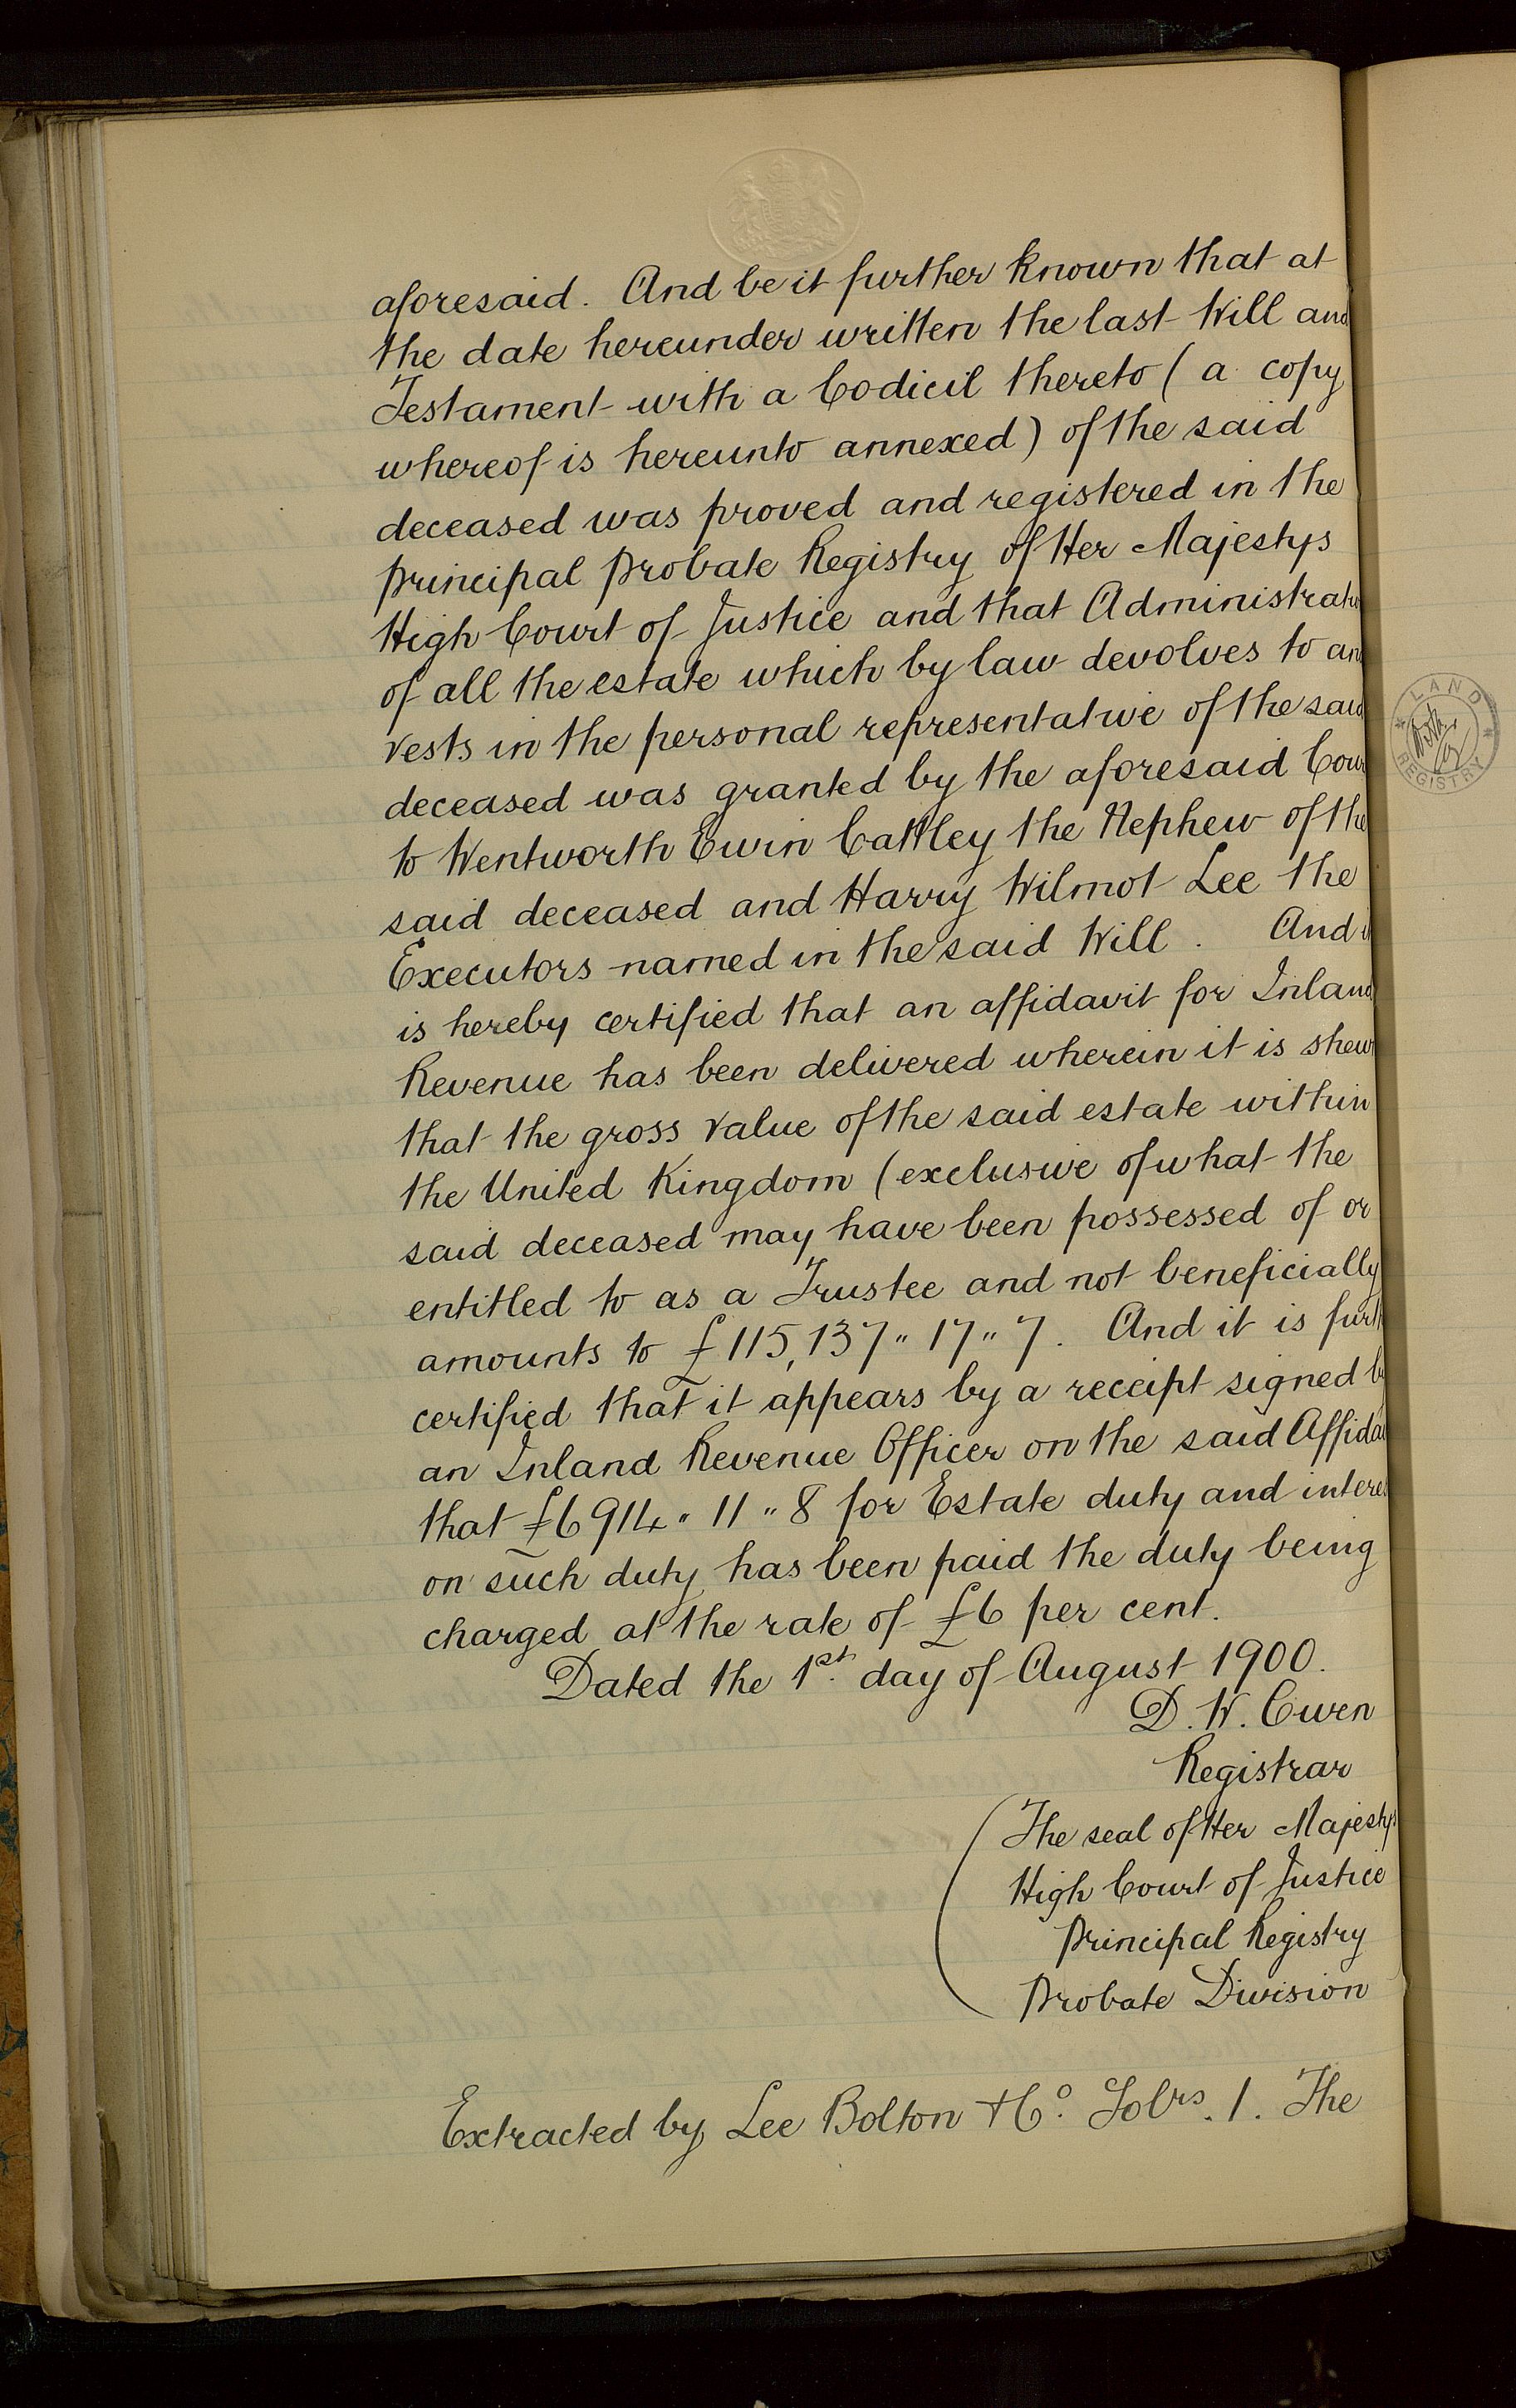 aforesaid. And be it further known that at
the date hereunder written the last Will and
Testament with a Codicil thereto (a copy
whereof is hereunto annexed) of the said
deceased was proved and registered in the
Principal Probate Registry of Her Majestys
High Court of Justice and that Administratio
of all the estate which by law devolves to and
vests in the personal representative of the said
deceased was granted by the aforesaid Cour
to Wentworth Ewin Cattley the Nephew of the
said deceased and Harry Wilmot Lee the
Executors named in the said Will. And it
is hereby certified that an affidavit for Inland
Revenue has been delivered wherein it is shewn
that the gross value of the said estate within
the United Kingdom (exclusive of what the
said deceased may have been possessed of or
entitled to as a Trustee and not beneficially
amounts to £115,137 " 17 " 7. And it is furth
certified that it appears by a receipt signed by
an Inland Revenue Officer on the said Affidav
that £6914 " 11 " 8 for Estate duty and interes
on such duty has been paid the duty being
charged at the rate of £6 per cent.
Dated the 1st day of August 1900.
D. W. Owen
Registrar
(The seal of Her Majestys
High Court of Justice
Principal Registry
Probate Division
Extracted by Lee Bolton & Co. Solrs. 1. The
LAND REGISTRY